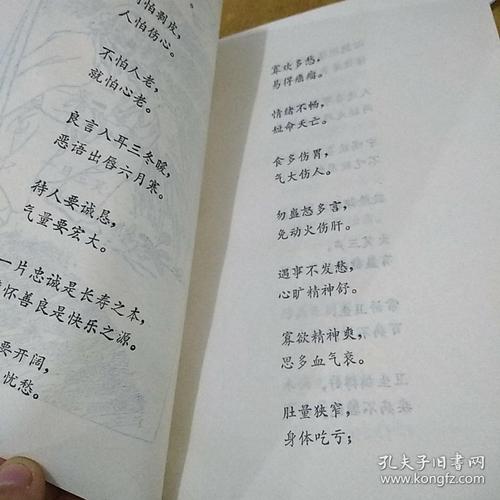 怕剥皮，
人怕伤心。
不怕人老，
就怕心老。
良言入耳三冬暖，
恶语出唇六月寒。
待人要诚恳，
气量要宏大。
一片忠诚是长寿之本，
怀善良是快乐之源。
要开阔，
忧愁。
寡欢多愁，
易得癌瘤。
情绪不畅，
短命夭亡。
食多伤胃，
气大伤人。
勿蛊怒多言，
免动火伤肝。
遇事不发愁，
心旷精神舒。
寡欲精神爽，
思多血气衰。
肚量狭窄，
身体吃亏；
孔夫子旧书网